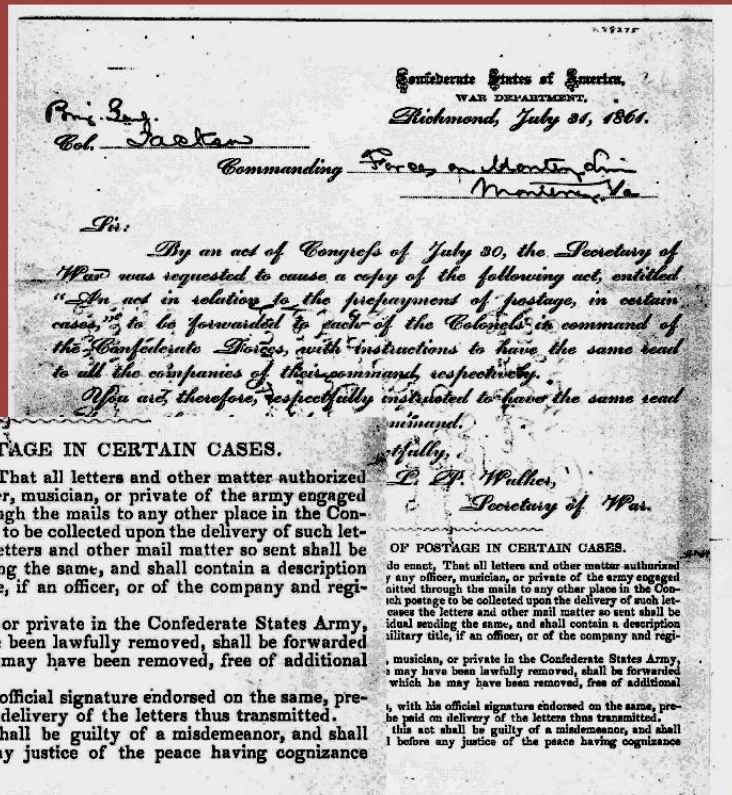 Confederate States of America,
WAR DEPARTMENT,
Richmond, July 31, 1861.
Brig. Genl.
Col. Jackson
Commanding Forces on Monterey Line
Monterey, Va
Sir:
By an act of Congress of July 30, the Secretary of
War was requested to cause a copy of the following act, entitled
"An act in relation to the prepayment of postage, in certain
cases," to be forwarded to each of the Colonels in command of
the Confederate Forces, with instructions to have the same read
to all the companies of their command, respectively.
You are, therefore, respectfully instructed to have the same read
mmand.
tfully,
L. P. Walker,
Secretary of War.
TAGE IN CERTAIN CASES.
That all letters and other matter authorized
er, musician, or private of the army engaged
ugh the mails to any other place in the Con-
to be collected upon the delivery of such let-
etters and other mail matter so sent shall be
ng the same, and shall contain a description
e, if an officer, or of the company and regi-
or private in the Confederate States Army,
been lawfully removed, shall be forwarded
may have been removed, free of additional
official signature endorsed on the same, pre-
delivery of the letters thus transmitted.
hall be guilty of a misdemeanor, and shall
ny justice of the peace having cognizance
OF POSTAGE IN CERTAIN CASES.
do enact, That all letters and other matter authorized
y any officer, musician, or private of the army engaged
mitted through the mails to any other place in the Con-
ch postage to be collected upon the delivery of such let-
cases the letters and other mail matter so sent shall be
idual sending the same, and shall contain a description
ilitary title, if an officer, or of the company and regi-
, musician, or private in the Confederate States Army,
may have been lawfully removed, shall be forwarded
which he may have been removed, free of additional
, with his official signature endorsed on the same, pre-
be paid on delivery of the letters thus transmitted.
this act shall be guilty of a misdemeanor, and shall
l before any justice of the peace having cognizance